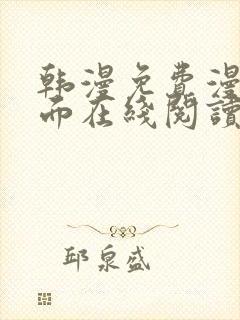 韩漫免费漫
而在线阅读
邱泉盛